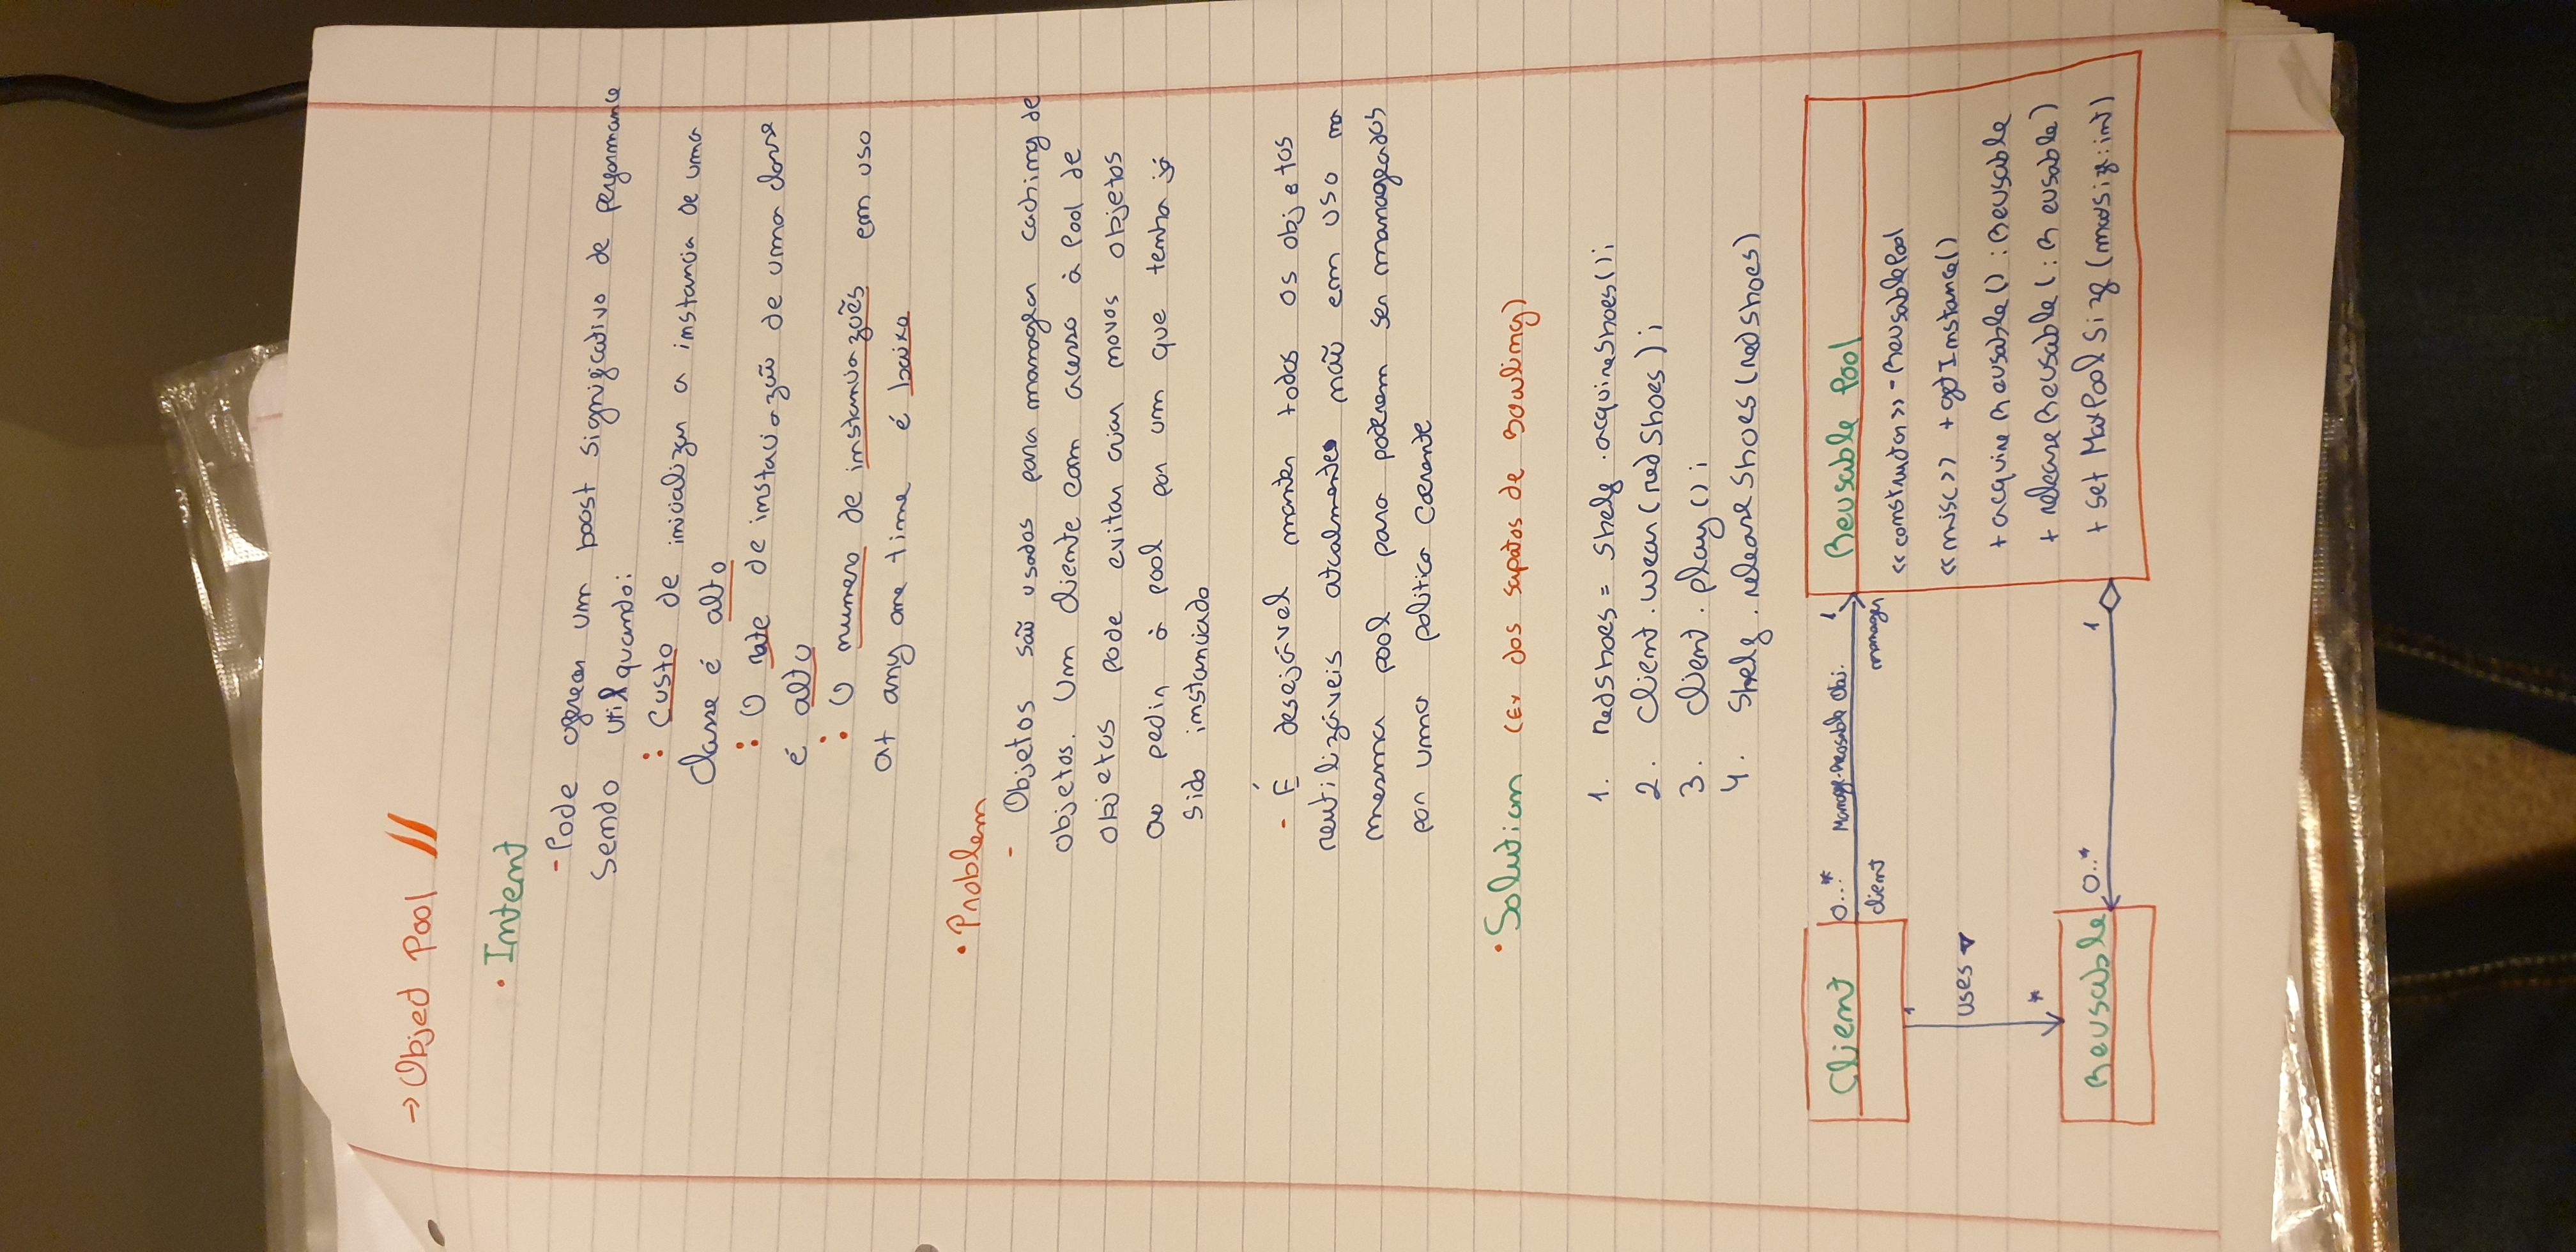 → Object Pool //
• Intent
- Pode oferecer um boost significativo de performance
sendo util quando:
: Custo de inicializar a instancia de uma
classe é alto
: O rate de instaciazão de uma classe
é alto
: O numero de instanciazões em uso
at any one time é baixo
• Problem
- Objetos são usados para managear caching de
objetos. Um cliente com acesso à Pool de
objetos pode evitar criar novos objetos
ao pedir à pool por um que tenha já
sido instanciado
- É desejável manter todos os objetos
reutilizáveis atcalmente não em uso na
mesma pool para poderem ser manageados
por uma politica coerente
• Solution (Ex dos sapatos de Bowling)
1. redShoes = Shelf.acquireShoes();
2. Client.wear(redShoes);
3. Client.play();
4. Shelf.releaseShoes(redshoes)
Client 0...* Manage-Reusable Obj. 1 Reusable Pool
client manager
<<constructor>> - ReusablePool
1 <<misc>> + getInstance()
uses ▽
+ acquireReusable() : Reusable
* + releaseReusable(: Reusable)
Reusable 0..* 1 + set MaxPoolSize (maxSize: int)